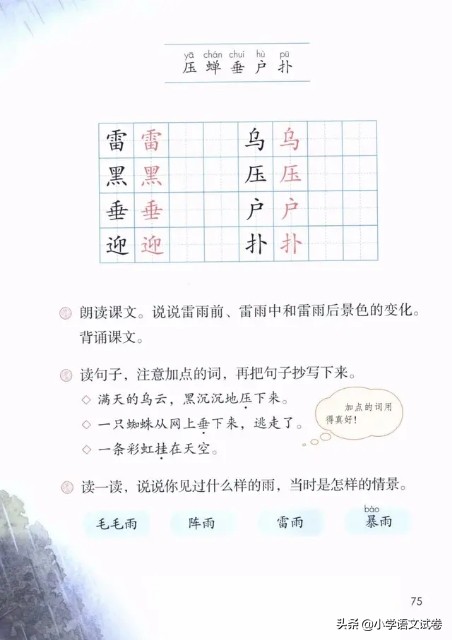 yā chán chuí hù pū
压 蝉 垂 户 扑
雷 雷 乌 乌
黑 黑 压 压
垂 垂 户 户
迎 迎 扑 扑
朗读课文。说说雷雨前、雷雨中和雷雨后景色的变化。
背诵课文。
读句子，注意加点的词，再把句子抄写下来。
◇ 满天的乌云，黑沉沉地压下来。
◇ 一只蜘蛛从网上垂下来，逃走了。
◇ 一条彩虹挂在天空。
加点的词用
得真好！
读一读，说说你见过什么样的雨，当时是怎样的情景。
bào
毛毛雨 阵雨 雷雨 暴雨
75
头条 @小学语文试卷